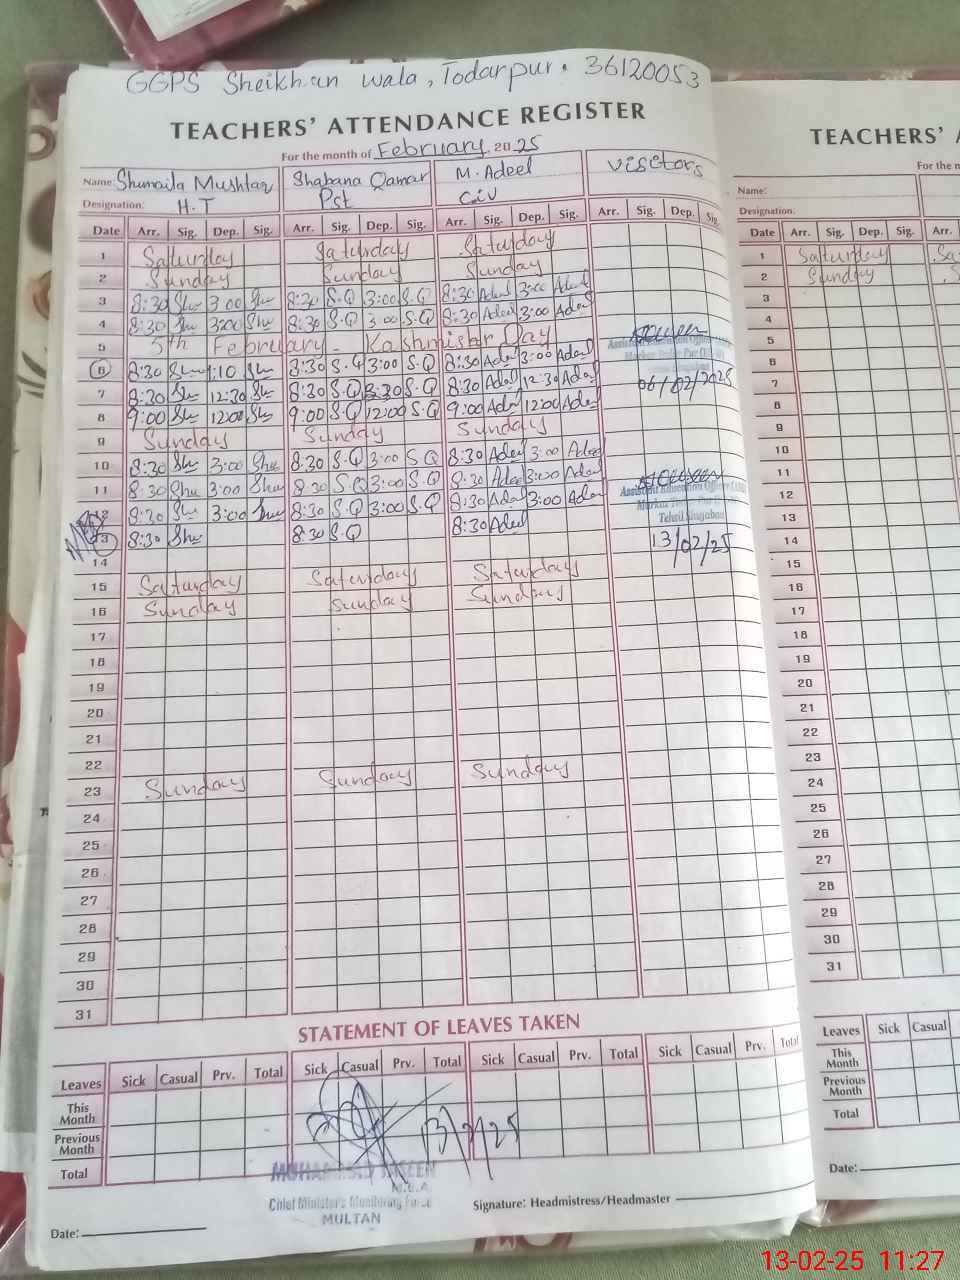 GGPS Sheikhan Wala, Todarpur. 36120053
TEACHERS' ATTENDANCE REGISTER
For the month of February 2025
Name: Shumaila Mushtaq Shabana Qamar M. Adeel Visetors
Designation: H.T Pst C.iV
Date Arr. Sig. Dep. Sig. Arr. Sig. Dep. Sig. Arr. Sig. Dep. Sig. Arr. Sig. Dep. Sig.
1 Saturday Saturday Saturday
2 Sunday Sunday Sunday
3 8:30 Shu 3:00 Shu 8:30 S.Q 3:00 S.Q 8:30 Adeel 3:00 Adeel
4 8:30 Shu 3:00 Shu 8:30 S.Q 3:00 S.Q 8:30 Adeel 3:00 Adeel
5 5th February - Kashmir Day
6 8:30 Shu 1:10 Shu 8:30 S.Q 3:00 S.Q 8:30 Adeel 3:00 Adeel
7 8:30 Shu 12:30 Shu 8:30 S.Q S.Q 8:30 Adeel 12:30 Adeel 06/02/2025
8 9:00 Shu 12:00 Shu 9:00 S.Q 12:00 S.Q 9:00 Adeel 12:00 Adeel
9 Sunday Sunday Sunday
10 8:30 Shu 3:00 Shu 8:30 S.Q 3:00 S.Q 8:30 Adeel 3:00 Adeel
11 8:30 Shu 3:00 Shu 8:30 S.Q 3:00 S.Q 8:30 Adeel 3:00 Adeel
12 8:30 Shu 3:00 Shu 8:30 S.Q 3:00 S.Q 8:30 Adeel 3:00 Adeel
13 8:30 Shu 8:30 S.Q 8:30 Adeel
14 13/02/25
15 Saturday Saturday Saturday
16 Sunday Sunday Sunday
17
18
19
20
21
22
23 Sunday Sunday Sunday
24
25
26
27
28
29
30
31
STATEMENT OF LEAVES TAKEN
Leaves Sick Casual Prv. Total Sick Casual Prv. Total Sick Casual Prv. Total Sick Casual Prv. Total
This Month
Previous Month
Total
13/2/25
M.E.A
Chief Minister's Monitoring Force
MULTAN
Signature: Headmistress/Headmaster
Date:
TEACHERS' A
For the m
Name:
Designation:
Date Arr. Sig. Dep. Sig. Arr.
1 Saturday Sa
2 Sunday S
3
4
5
6
7
8
9
10
11
12
13
14
15
16
17
18
19
20
21
22
23
24
25
26
27
28
29
30
31
Leaves Sick Casual
This Month
Previous Month
Total
Date:
13-02-25 11:27